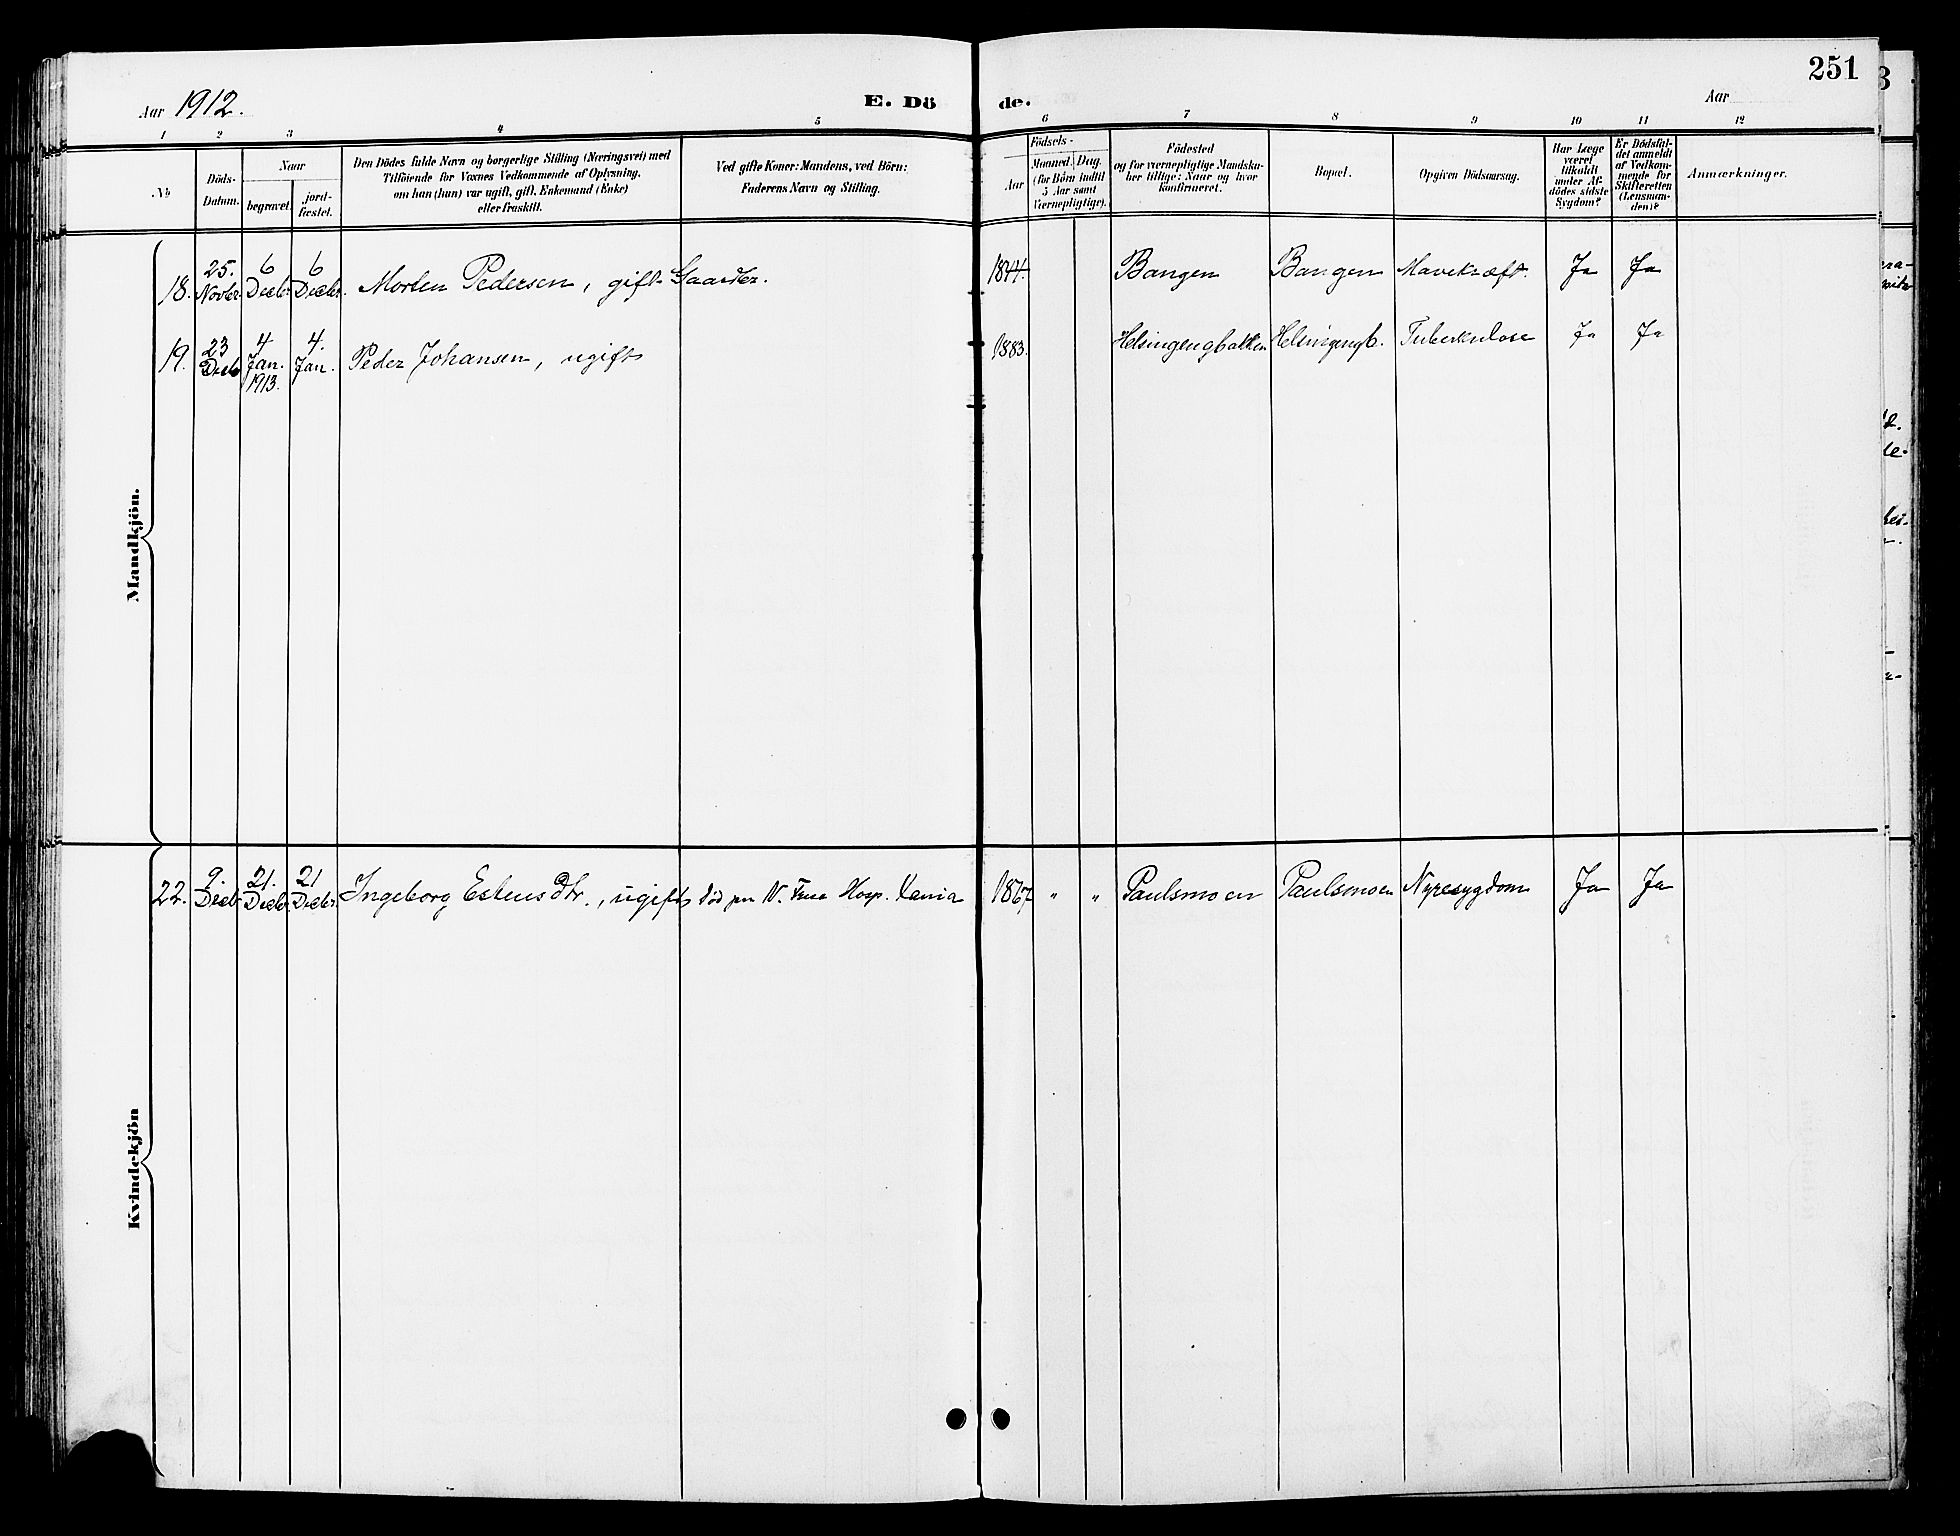 251
Aar 1912.
E. Dö de.
Aar
1 2 3 4 5 6 7 8 9 10 11 12
No
Döds-
Datum.
Naar
begravet.
jord-
fæstet.
Den Dödes fulde Navn og borgerlige Stilling (Næringsvei) med
Tilföiende for Voxnes Vedkommende af Oplysning,
om han (hun) var ugift, gift, Enkemand (Enke)
eller fraskilt.
Ved gifte Koner: Mandens, ved Börn:
Faderens Navn og Stilling.
Födsels-
Aar
Maaned. Dag.
(for Börn indtil
5 Aar samt
Værnepligtige).
Födested
og for værnepligtige Mandska-
ber tillige: Naar og hvor
konfirmeret.
Bopæl.
Opgiven Dödsaarsag.
Har Læge
været
tilkaldt
under Af-
dödes sidste
Sygdom?
Er Dödsfal-
det anmeldt
af Vedkom-
mende for
Skifteretten
(Lensman-
den)?
Anmærkninger.
Mandkjön.
18. 25. Novbr. 6 Decbr. 6 Decbr. Morten Pedersen, gift Gaardbr. 1844. Bangen Bangen Mavekræft. Ja Ja
19. 23 Decb 4 Jan. 1913. 4. Jan. Peder Johansen, ugift 1883. Helsingengbakken Helsingengb. Tuberkulose Ja Ja
Kvindekjön
22. 9. Decbr. 21. Decbr. 21 Decbr. Ingeborg Estensdtr., ugift død paa V. Frue Hosp. Xania 1867 " " Paulsmoen Paulsmoen Nyresygdom Ja Ja